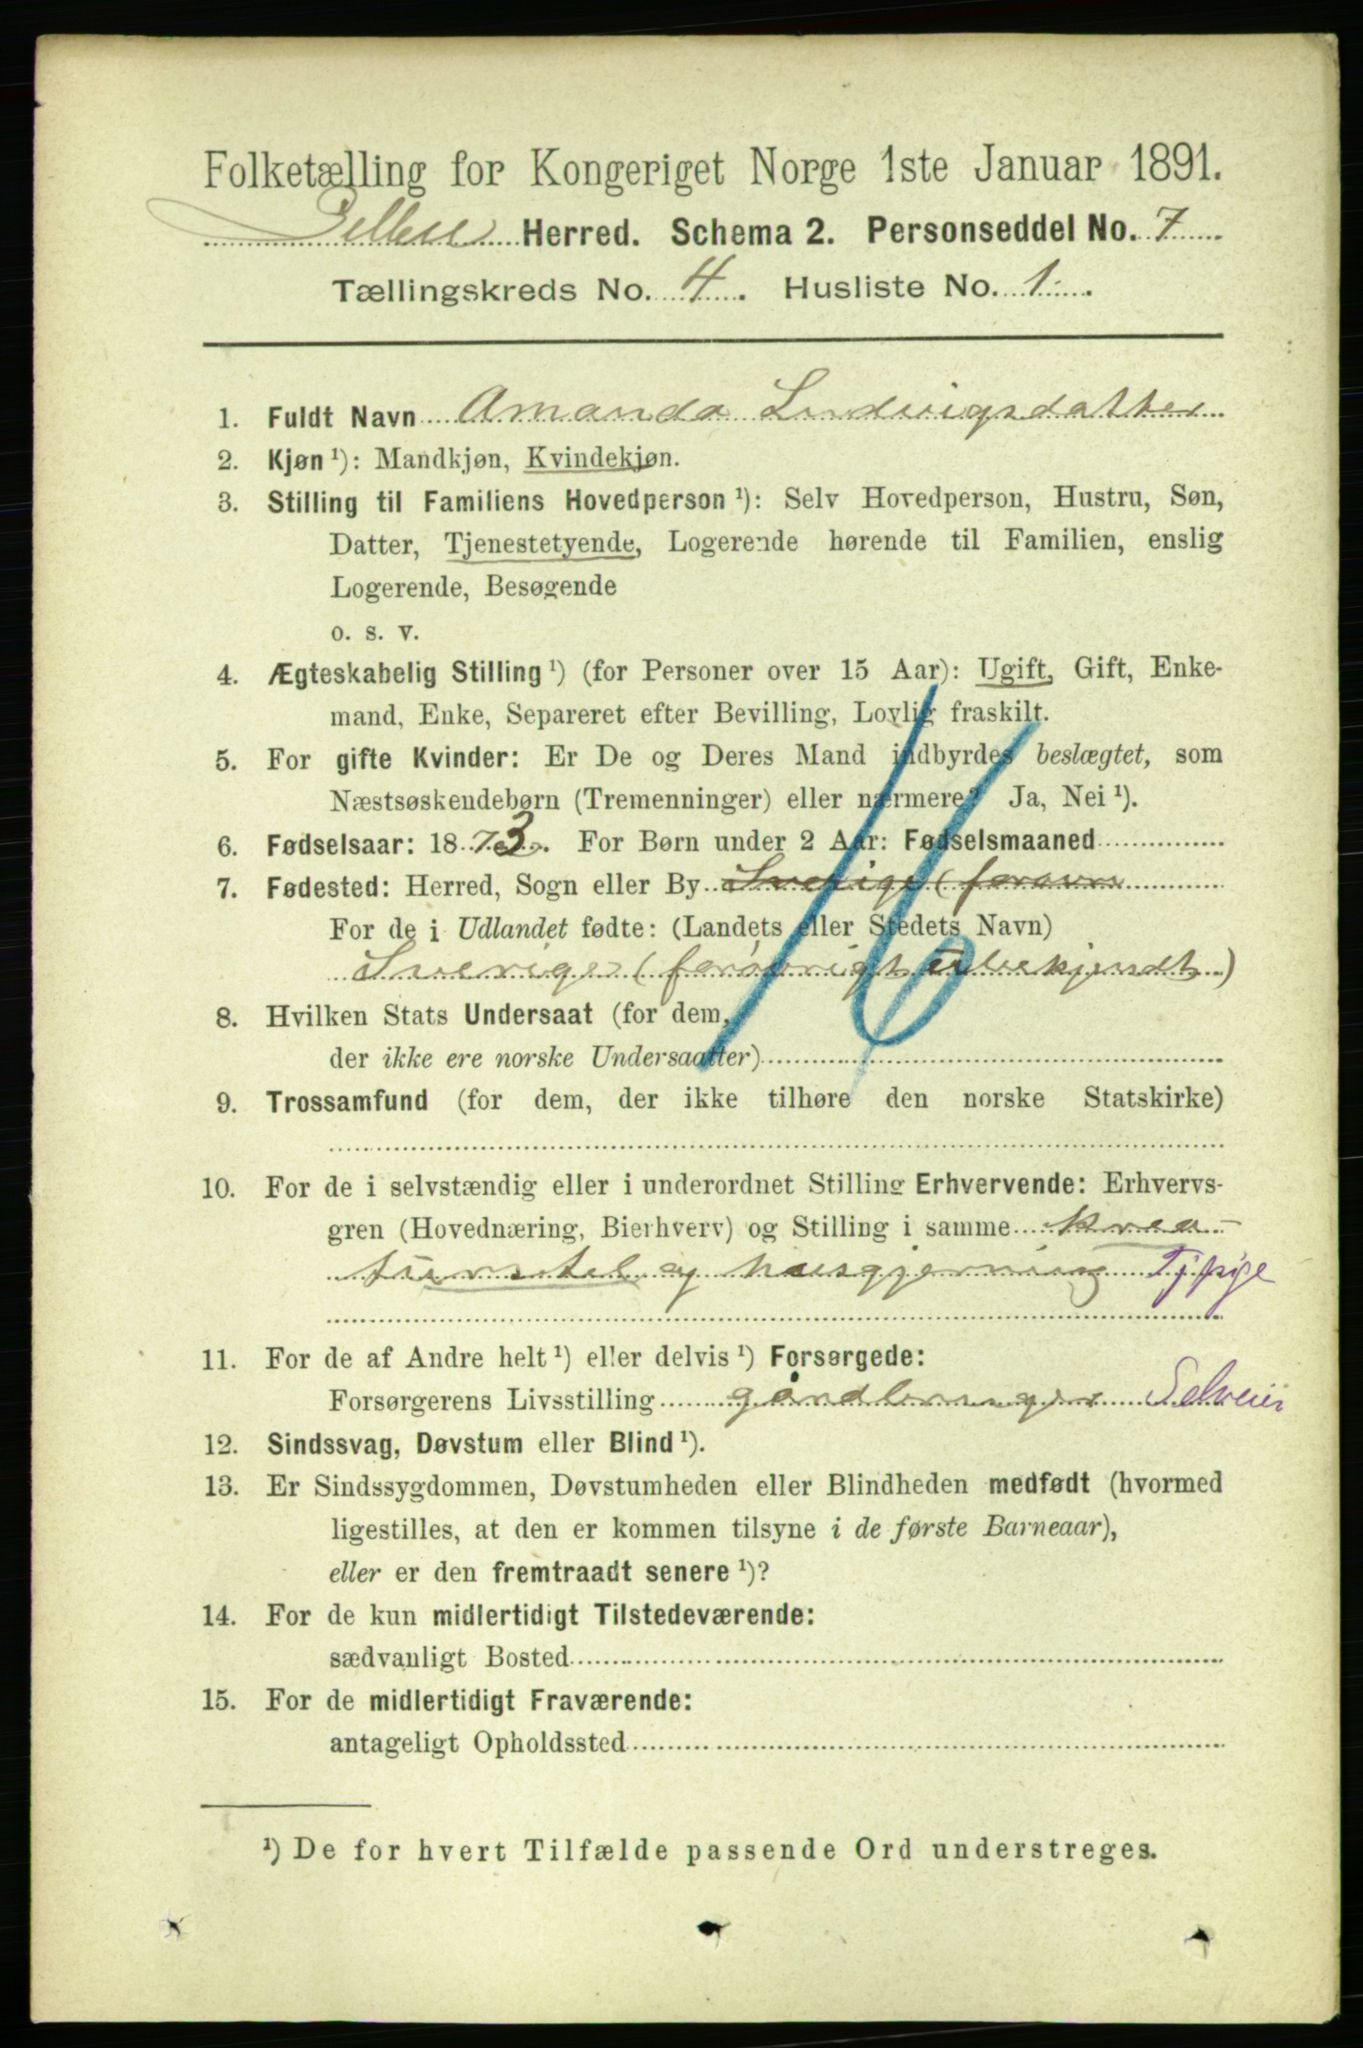 Folketælling for Kongeriget Norge 1ste Januar 1891.
Herred. Schema 2. Personseddel No. 7
Tællingskreds No. 4. Husliste No. 1.
1. Fuldt Navn Amanda Ludvigsdatter
2. Kjøn ¹): Mandkjøn, Kvindekjøn.
3. Stilling til Familiens Hovedperson ¹): Selv Hovedperson, Hustru, Søn,
Datter, Tjenestetyende, Logerende hørende til Familien, enslig
Logerende, Besøgende
o. s. v.
4. Ægteskabelig Stilling ¹) (for Personer over 15 Aar): Ugift, Gift, Enke-
mand, Enke, Separeret efter Bevilling, Lovlig fraskilt.
5. For gifte Kvinder: Er De og Deres Mand indbyrdes beslægtet, som
Næstsøskendebørn (Tremenninger) eller nærmere? Ja, Nei ¹).
6. Fødselsaar: 1873. For Børn under 2 Aar: Fødselsmaaned
7. Fødested: Herred, Sogn eller By Sverige (forøvr
For de i Udlandet fødte: (Landets eller Stedets Navn)
Sverige (forøvrigt ubekjendt)
8. Hvilken Stats Undersaat (for dem,
der ikke ere norske Undersaatter)
16
9. Trossamfund (for dem, der ikke tilhøre den norske Statskirke)
10. For de i selvstændig eller i underordnet Stilling Erhvervende: Erhvervs-
gren (Hovednæring, Bierhverv) og Stilling i samme Krea-
turstel og husgjerning Tjpige
11. For de af Andre helt ¹) eller delvis ¹) Forsørgede:
Forsørgerens Livsstilling gårdbruger Selveier
12. Sindssvag, Døvstum eller Blind ¹).
13. Er Sindssygdommen, Døvstumheden eller Blindheden medfødt (hvormed
ligestilles, at den er kommen tilsyne i de første Barneaar),
eller er den fremtraadt senere ¹)?
14. For de kun midlertidigt Tilstedeværende:
sædvanligt Bosted
15. For de midlertidigt Fraværende:
antageligt Opholdssted
¹) De for hvert Tilfælde passende Ord understreges.